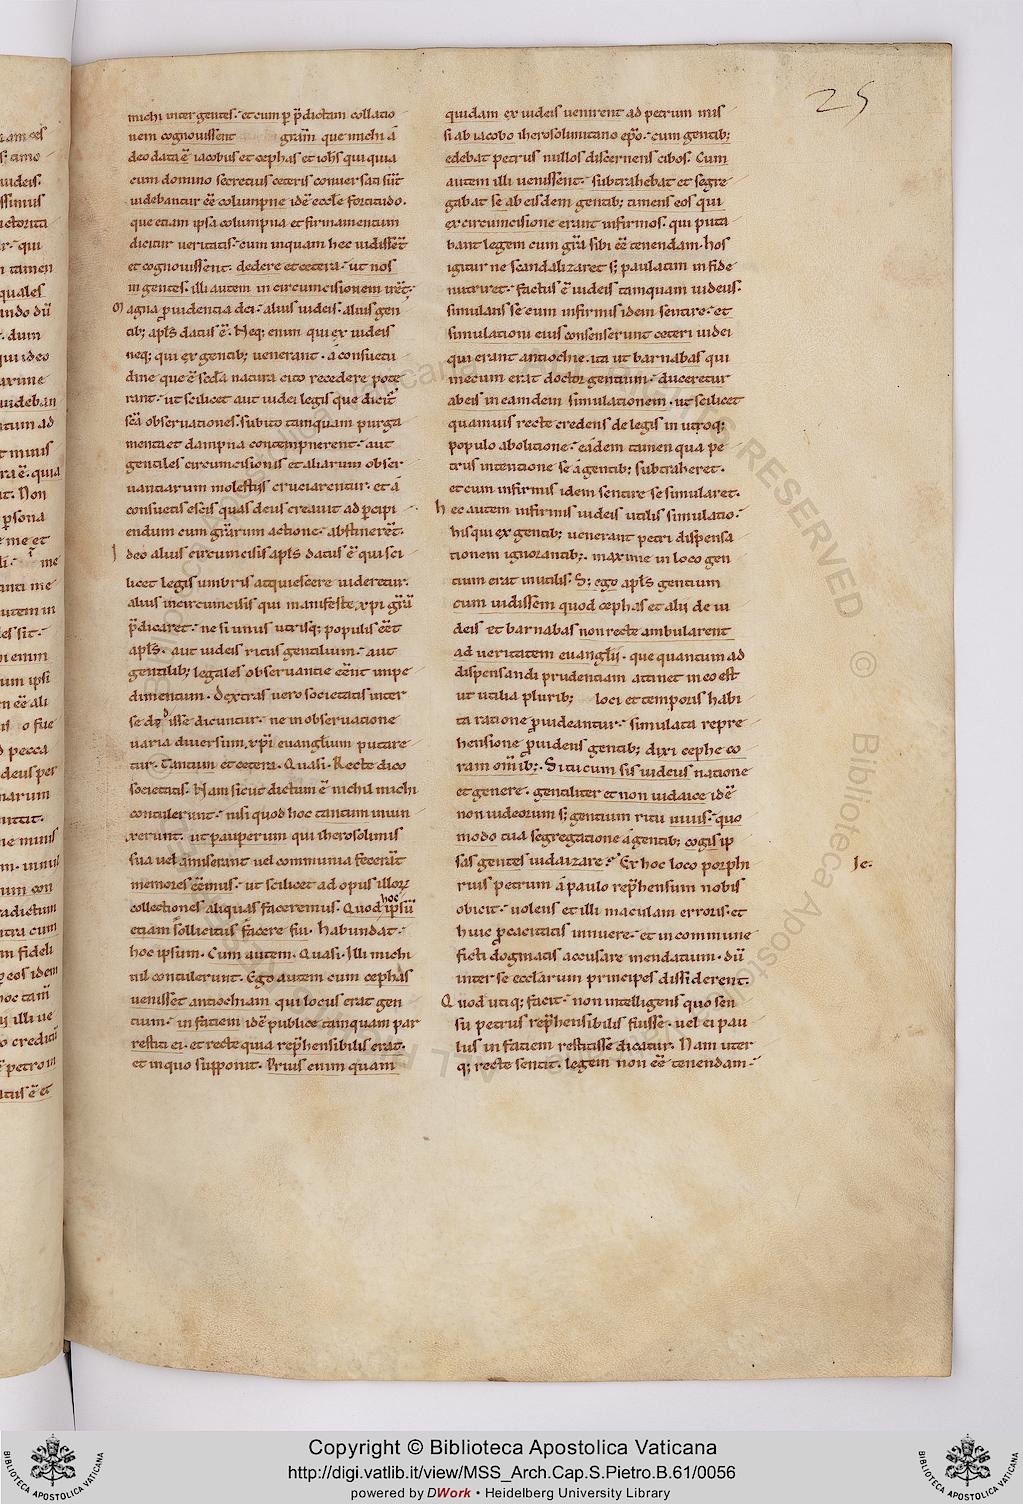 25
michi inter gentes. et cum p p̄dictam collatio
nem cognouissent grām que michi á
deo data ē iacobus et cephas et ioh̄s qui quia
cum domino secretius ceteris conuersati sūt
uidebantur eē columpne idē eccłe fortitudo.
que etiam ipsa columpna et firmamentum
dicitur ueritatis. cum inquam hec uidissēt
et cognouissent. dedere et cetera. ut nos
in gentes. illi autem in circumcisionem
Magna puidentia dei. alius iudeis. alius gen
tib; apłs datus ē. Neq; enim qui ex iudeis
neq; qui ex gentib; uenerant. á consuetu
dine que ē scđa natura cito recedere pote
rant. ut scilicet aut iudei legis que dicit̄
scā obseruationes. subito tamquam purga
menta et dampna contempnerent. aut
gentiles circumcisionis et aliarum obser
uantiarum molestiis cruciarentur. et á
consuetis escis quas deus creauit ad pcipi
endum cum grārum actione. abstinerēt.
Ideo alius circumcisis apłs datus ē qui sci
licet legis umbris atquiescere uideretur.
alius incircumcisis qui manifeste xpi grā
p̄dicaret. ne si unus utrisq; populis eēt
apłs. aut iudeis ritus gentilium. aut
gentilib; legales obseruantie eēnt impe
dimentum. Dextras uero societatis inter
se dedisse dicuntur. ne in obseruatione
uaria diuersum xpi euangelium putare
tur. Tantum et cetera. Quasi. Recte dico
societatis. Nam sicut dictum ē nichil michi
contulerunt. nisi quod hoc tantum iniun
xerunt. ut pauperum qui iherosolimis
sua uel amiserant uel communia fecerāt
memores eēmus. ut scilicet ad opus illoꝝ
collectiones aliquas faceremus. Quod hoc ipsū
etiam sollicitus facere fui. habundat.
hoc ipsum. Cum autem. Quasi. Illi michi
nil contulerunt. Ego autem cum cephas
uenisset antiochiam qui locus erat gen
tium. in faciem idē publice tamquam par
restiti ei. et recte quia rep̄hensibilis erat.
et in quo supponit. Prius enim quam
quidam ex iudeis uenirent ad petrum mis
si ab iacobo iherosolimitano epō. cum gentib;
edebat petrus nullos discernens cibos. Cum
autem illi uenissent. subtrahebat et segre
gabat se ab eisdem gentib; timens eos qui
ex circumcisione erant infirmos. qui puta
bant legem cum grā sibi eē tenendam. hos
igitur ne scandalizaret s; paulatim in fide
nutriret. factus ē iudeis tamquam iudeus.
simulans se cum infirmis idem sentire. et
simulationi eius consenserunt ceteri iudei
qui erant antiochie. ita ut barnabas qui
mecum erat doctor gentium. duceretur
ab eis in eamdem simulationem. ut scilicet
quamuis recte credens de legis in utroq;
populo abolitione. eadem tamen qua pe
trus intentione se á gentib; subtraheret.
et cum infirmis idem sentire se simularet.
hec autem infirmis iudeis utilis simulatio.
hisqui ex gentib; uenerant petri dispensa
tionem ignorantib;. maxime in loco gen
tium erat inutilis. S; ego apłs gentium
cum uidissem quod cephas et alii de iu
deis et barnabas non recte ambularent
ad ueritatem euangelii. que quantum ad
dispensandi prudentiam attinet in eo est
ut utilia plurib; loci et temporis habi
ta ratione puideantur. simulata repre
hensione puidens gentib; dixi cephe co
ram om̄ib;. Si tu cum sis iudeus natione
et genere. gentiliter et non iudaice idē
non iudeorum s; gentium ritu uiuis. quo
modo tua segregatione á gentib; cogis ip
sas gentes iudaizare? Ex hoc loco porphi
rius petrum á paulo rep̄hensum nobis
obicit. uolens et illi maculam erroris. et
huic pcacitatis inuere. et in commune
ficti dogmatis accusare mendatium. dū
inter se ecclarum principes dissiderent.
Quod utiq; facit. non intelligens quo sen
su petrus rep̄hensibilis fuisse. uel ei pau
lus in faciem restitisse dicatur. Nam uter
q; recte sentit. legem non eē tenendam.
Je.
Copyright © Biblioteca Apostolica Vaticana
http://digi.vatlib.it/view/MSS_Arch.Cap.S.Pietro.B.61/0056
powered by DWork • Heidelberg University Library